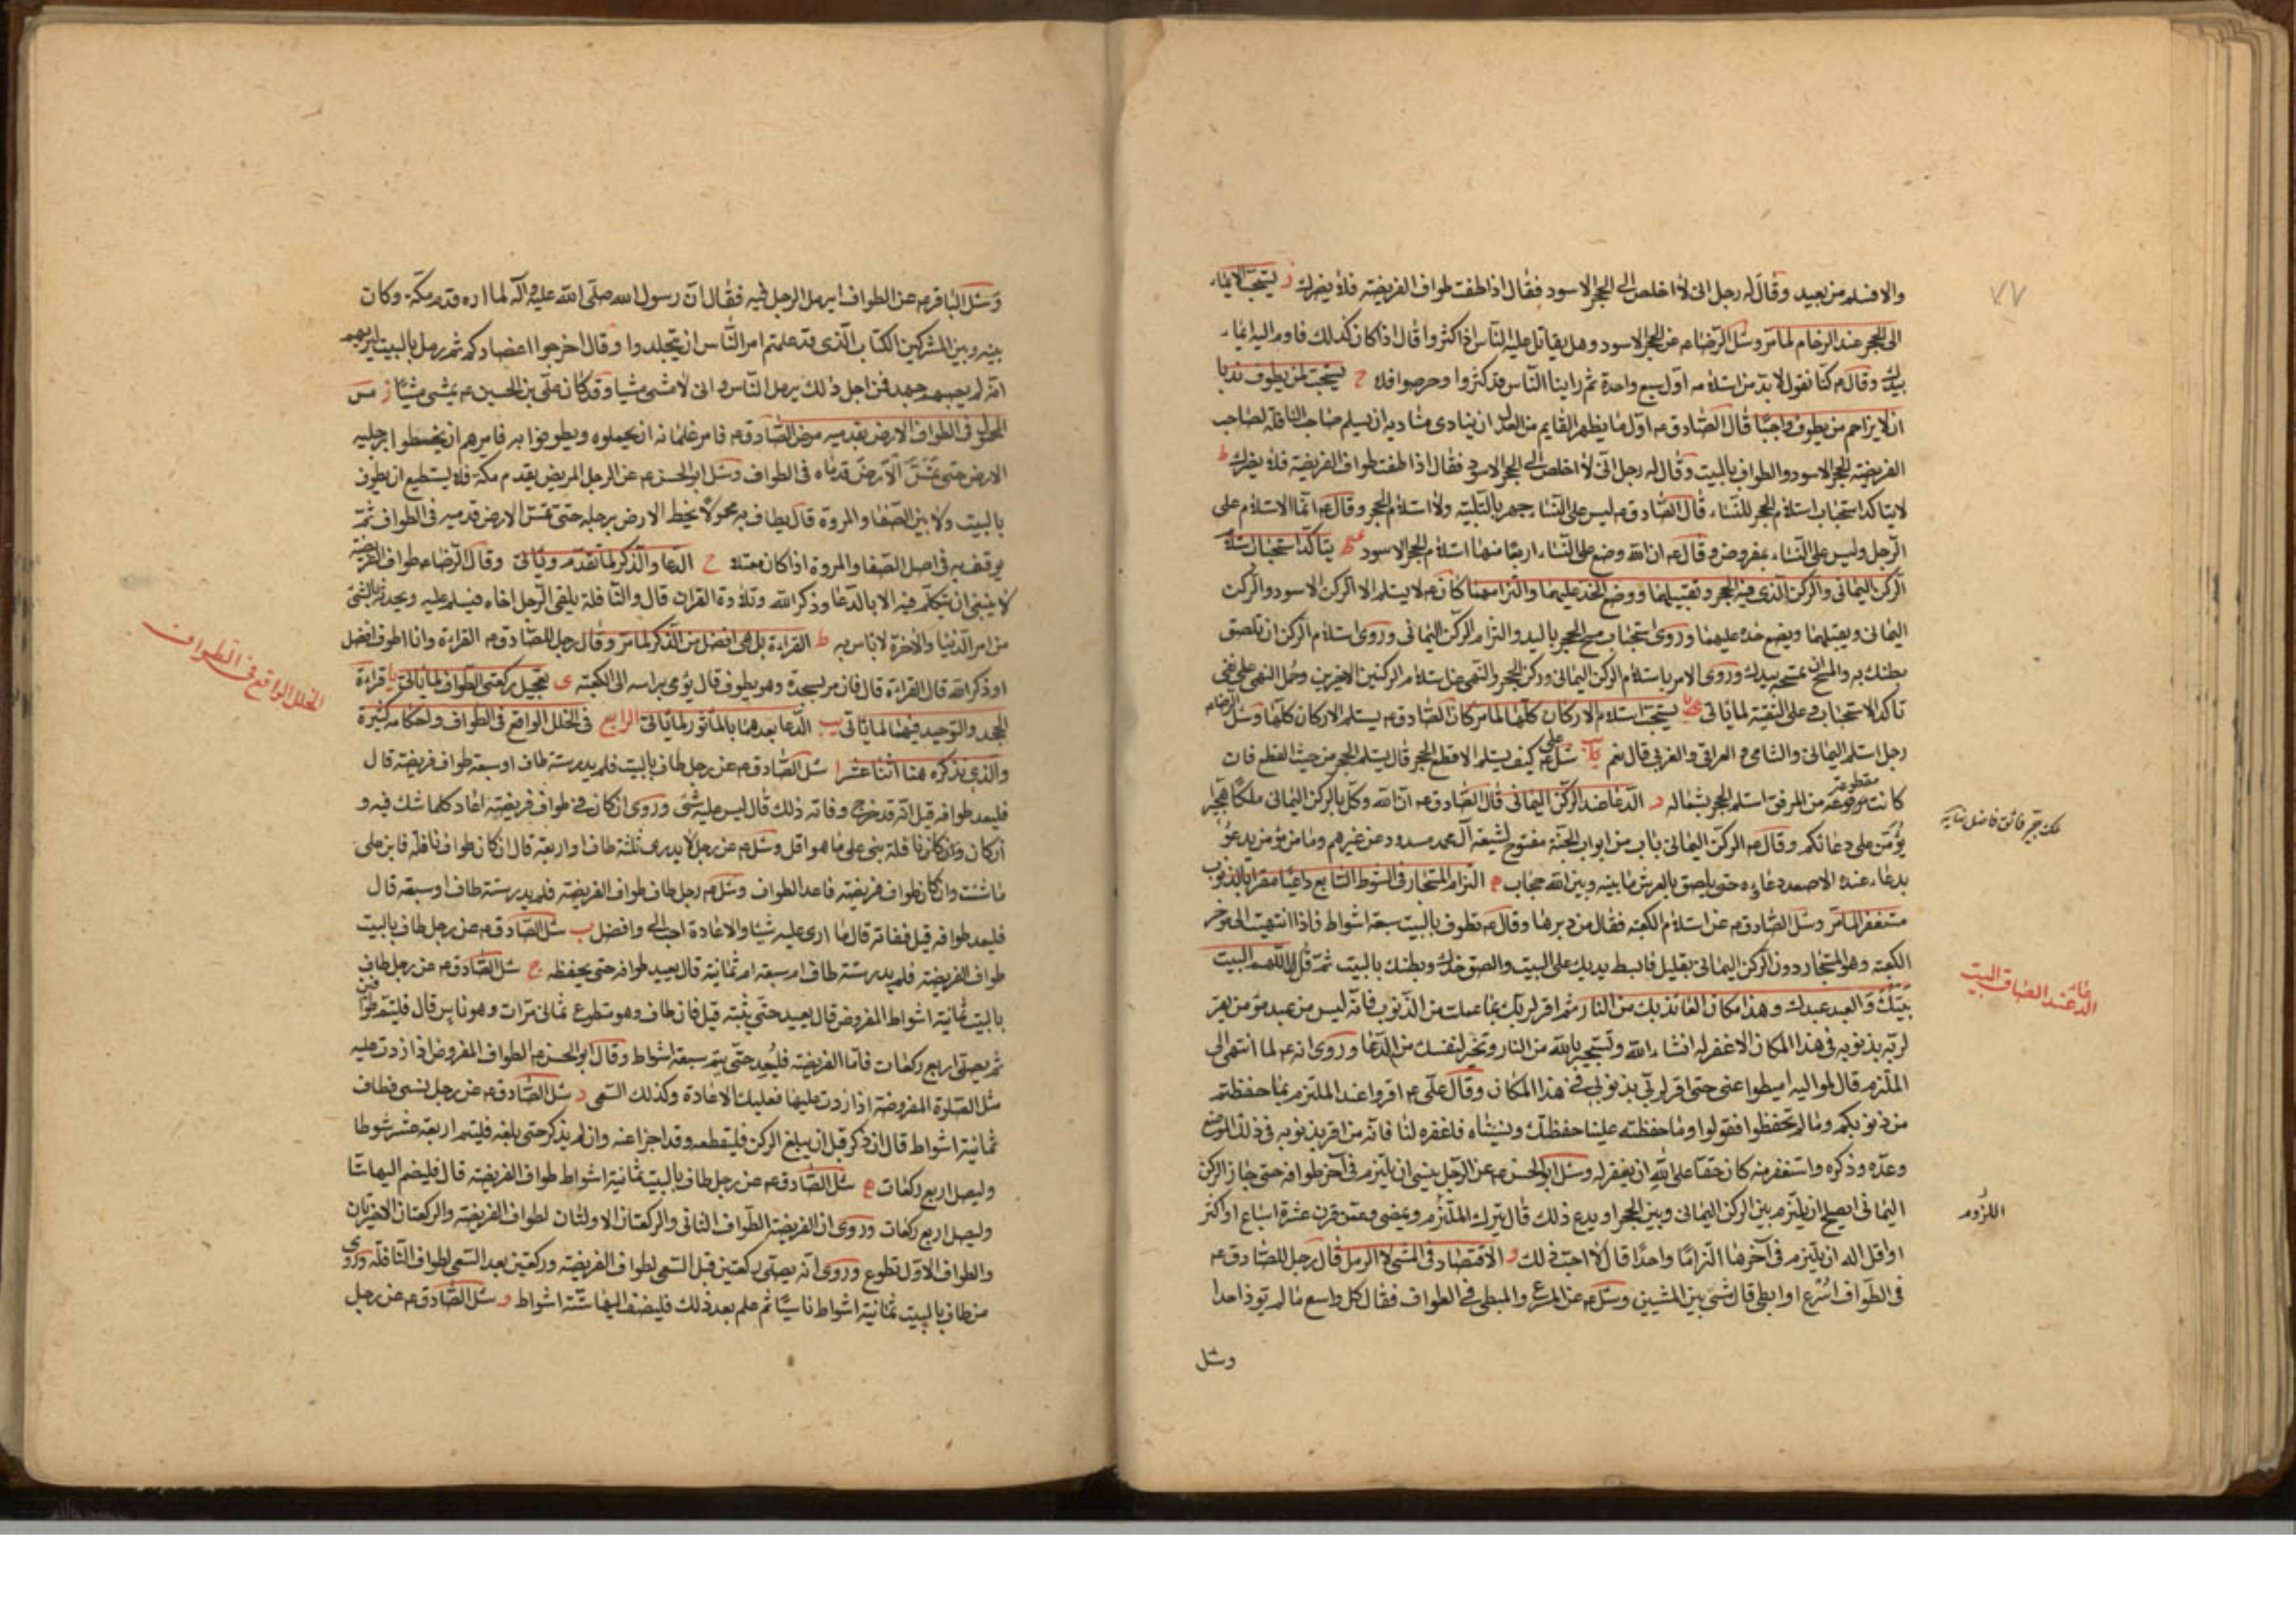 ٧٧
والا فسلم من بعيد وقال له رجل انى لا اخلص الى الحجر الاسود فقال اذا طفت طواف الفريضة فلا يضرك ز يستحب الايماء
الى الحجر عند الزحام لما مر وسئل الرضا ع عن الحجر الاسود وهل يقاتل عليه الناس اذا كثروا قال اذا كان كذلك فاوم اليه ايماء
بيدك وقال ع كنا نقول لابد من استلامه اول سبع واحدة ثم راينا الناس قد كثروا وحرصوا فلا ح يستحب لمن يطوف ندبا
ان لا يزاحم من يطوف واجبا قال الصادق ع اول ما يظهر القايم من العدل ان ينادى مناديه ان يسلم صاحب النافلة لصاحب
الفريضة الحجر الاسود والطواف بالبيت وقال له رجل انى لا اخلص الى الحجر الاسود فقال اذا طفت طواف الفريضة فلا يضرك ط
لا يتاكد استحباب استلام الحجر للنساء قال الصادق ع ليس على النساء جهر بالتلبية ولا استلام الحجر وقال ع انما الاستلام على
الرجل وليس على النساء بمفروض وقال ع ان الله وضع على النساء اربعا منها استلام الحجر الاسود يتاكد استحباب استلام
الركن اليمانى والركن الذى فيه الحجر وتقبيلهما ووضع الخد عليهما والتزامهما كان ع لا يستلم الا الركن الاسود والركن
اليمانى ويقبلهما ويضع خده عليهما وروى استحباب مسح الحجر باليد والتزام الركن اليمانى وروى استلام الركن ان تلصق
بطنك به والمسح ان تمسحه بيدك وروى الامر باستلام الركن اليمانى وركن الحجر والنهى عن استلام الركنين الاخيرين وحمل النهى على نفى
تاكد الاستحباب وعلى التقية لما ياتى يا يستحب استلام الاركان كلها لما مر كان الصادق ع يستلم الاركان كلها وسئل الرضا ع
رجل استلم اليمانى والشامى والعراقى والغربى قال نعم يب سئل على ع كيف يستلم الاقطع الحجر قال يستلم الحجر من حيث القطع فان
كانت مقطوعة من المرفق استلم الحجر بشماله د الدعا عند الركن اليمانى قال الصادق ع ان الله وكل بالركن اليمانى ملكا هجيرا
يؤمن على دعائكم وقال ع الركن اليمانى باب من ابواب الجنة مفتوح لشيعة آل محمد مسدود عن غيرهم وما من مؤمن يدعو
بدعاء عنده الا صعد دعاؤه حتى يلصق بالعرش ما بينه وبين الله حجاب ه التزام المستجار فى الشوط السابع داعيا مقرا بالذنوب
مستغفرا لما مر وسئل الصادق ع عن استلام الكعبة فقال من دبرها وقال ع تطوف بالبيت سبعة اشواط فاذا انتهيت الى مؤخر
الكعبة وهو المستجار دون الركن اليمانى بقليل فابسط يديك على البيت والصق خدك وبطنك بالبيت ثم قل اللهم البيت
بيتك والعبد عبدك وهذا مكان العائذ بك من النار ثم اقر لربك بما عملت من الذنوب فانه ليس من عبد مؤمن يقر
لربه بذنوبه فى هذا المكان الا غفر له انشاء الله وتستجير بالله من النار وتخير لنفسك من الدعا وروى انه ع لما انتهى الى
الملتزم قال لمواليه اميطوا عنى حتى اقر لربى بذنوبى فى هذا المكان وقال على ع اقروا عند الملتزم بما حفظتم
من ذنوبكم وما لم تحفظوا فقولوا وما حفظته علينا حفظتك ونسيناه فاغفره لنا فانه من اقر بذنوبه فى ذلك الموضع
وعده وذكره واستغفر منه كان حقا على الله ان يغفر له وسئل ابو الحسن ع عن الرجل ينسى ان يلتزم فى آخر طوافه حتى جاز الركن
اليمانى ايصلح ان يلتزم بين الركن اليمانى وبين الحجر او يدع ذلك قال يترك الملتزم ويمضى وعمن قرن عشرة اسباع او اكثر
او اقل اله ان يلتزم فى آخرها التزاما واحدا قال لا احب ذلك و الاقتصاد فى المشى لا الرمل قال رجل للصادق ع
فى الطواف اسرع او ابطى قال مشى بين المشيين وسئل ع عن المسرع والمبطى فى الطواف فقال كل واسع ما لم يؤذ احدا
وسئل
ملك هجير فائق فاضل نهاية
الدعاء عند الصاق البيت
اللزوم
وسئل الباقر ع عن الطواف ايرمل الرجل فيه فقال ان رسول الله صلى الله عليه وآله لما اراد قدم مكة وكان
بينه وبين المشركين الكتاب الذى قد علمتم امر الناس ان يتجلدوا وقال اخرجوا اعضادكم ثم رمل بالبيت ليريهم
انه لم يصبهم جهد فمن اجل ذلك يرمل الناس وانى لامشى مشيا وقد كان على بن الحسين ع يمشى مشيا ز مس
المحمول فى الطواف الارض بقدميه مرض الصادق ع فامر غلمانه ان يحملوه ويطوفوا به فامرهم ان يخطوا برجليه
الارض حتى تمس الارض قدماه فى الطواف وسئل ابو الحسن ع عن الرجل المريض يقدم مكة فلا يستطيع ان يطوف
بالبيت ولا بين الصفا والمروة قال يطاف به محمولا يخط الارض برجليه حتى تمس الارض قدميه فى الطواف ثم
يوقف به فى اصل الصفا والمروة اذا كان معتلا ح الدعا والذكر لما تقدم وياتى وقال الرضا ع طواف الفريضة
لا ينبغى ان يتكلم فيه الا بالدعا وذكر الله وتلاوة القران قال والنافلة يلقى الرجل اخاه فيسلم عليه ويحدثه بالشئ
من امر الدنيا والاخرة لا باس به ط القراءة بل هى افضل من الذكر لما مر وقال رجل للصادق ع القراءة وانا اطوف افضل
او ذكر الله قال القراءة قال فان مر بسجدة وهو يطوف قال يؤمى براسه الى الكعبة ى تعجيل ركعتى الطواف لما ياتى يا قراءة
الجحد والتوحيد فيهما لما ياتى يب الدعا بعدهما بالماثور لما ياتى الرابع فى الخلل الواقع فى الطواف واحكامه كثيرة
والذى نذكره هنا اثنا عشر ا سئل الصادق ع عن رجل طاف بالبيت فلم يدر ستة طاف او سبعة طواف فريضة قال
فليعد طوافه قيل انه قد خرج وفاته ذلك قال ليس عليه شئ وروى ان كان فى طواف فريضة اعاد كلما شك فيه و
ان كان نافلة بنى على ما هو اقل وسئل ع عن رجل لا يدرى ثلثة طاف او اربعة قال ان كان طواف نافلة فابن على
ما شئت وان كان طواف فريضة فاعد الطواف وسئل ع رجل طاف طواف الفريضة فلم يدر ستة طاف او سبعة قال
فليعد طوافه قيل ففاته قال ما ارى عليه شيئا والاعادة احب الى وافضل ب سئل الصادق ع عن رجل طاف بالبيت
طواف الفريضة فلم يدر ستة طاف ام سبعة ام ثمانية قال يعيد طوافه حتى يحفظه ج سئل الصادق ع عن رجل طاف
بالبيت ثمانية اشواط المفروض قال يعيد حتى يثبته قيل فان طاف وهو متطوع ثمانى مرات وهو ناس قال فليتم طوافين
ثم يصلى اربع ركعات فاما الفريضة فليعد حتى يتم سبعة اشواط وقال ابو الحسن ع الطواف المفروض اذا زدت عليه
مثل الصلوة المفروضة اذا زدت عليها فعليك الاعادة وكذلك السعى د سئل الصادق ع عن رجل نسى فطاف
ثمانية اشواط قال ان ذكر قبل ان يبلغ الركن فليقطعه وقد اجزا عنه وان لم يذكر حتى بلغه فليتم اربعة عشر شوطا
وليصل اربع ركعات ه سئل الصادق ع عن رجل طاف بالبيت ثمانية اشواط طواف الفريضة قال فليضم اليها ستا
وليصل اربع ركعات وروى ان الفريضة الطواف الثانى والركعتان الاولتان لطواف الفريضة والركعتان الاخرتان
والطواف الاول تطوع وروى انه يصلى ركعتين قبل السعى لطواف الفريضة وركعتين بعد السعى لطواف النافلة وروى
من طاف بالبيت ثمانية اشواط ناسيا ثم علم بعد ذلك فليضف اليها ستة اشواط و سئل الصادق ع عن رجل
الخلل الواقع فى الطواف